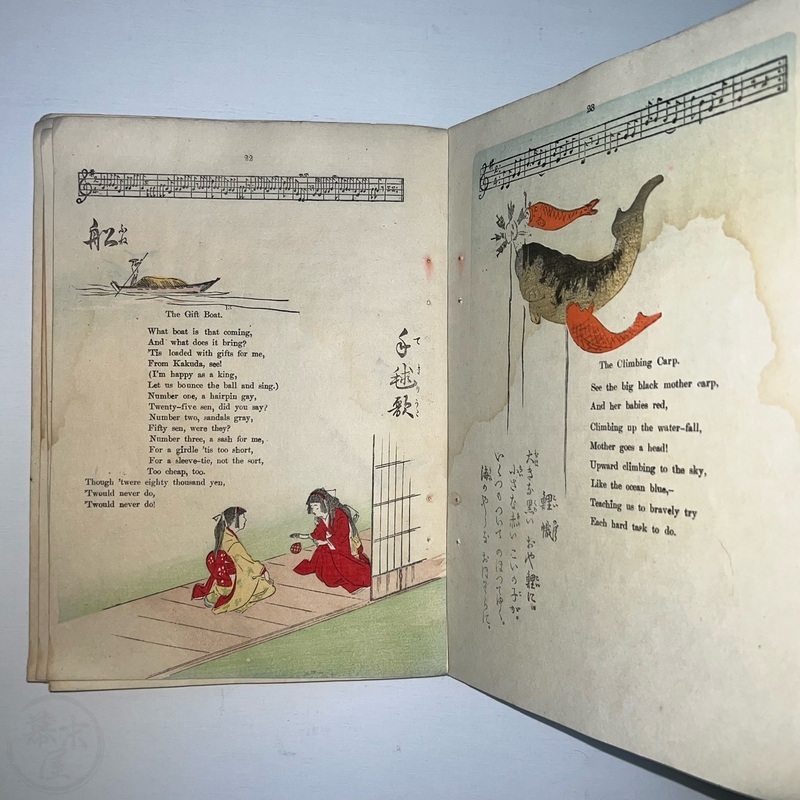 22
船
ふね
The Gift Boat.
What boat is that coming,
And what does it bring?
'Tis loaded with gifts for me,
From Kakuda, see!
(I'm happy as a king,
Let us bounce the ball and sing.)
Number one, a hairpin gay,
Twenty-five sen, did you say?
Number two, sandals gray,
Fifty sen, were they?
Number three, a sash for me,
For a girdle 'tis too short,
For a sleeve-tie, not the sort,
Too cheap, too.
Though 'twere eighty thousand yen,
'Twould never do,
'Twould never do!
手毬歌
てまりうた
23
The Climbing Carp.
See the big black mother carp,
And her babies red,
Climbing up the water-fall,
Mother goes a head!
Upward climbing to the sky,
Like the ocean blue,—
Teaching us to bravely try
Each hard task to do.
鯉幟
大きな黒い おや鯉に
小さな赤い こいの子が、